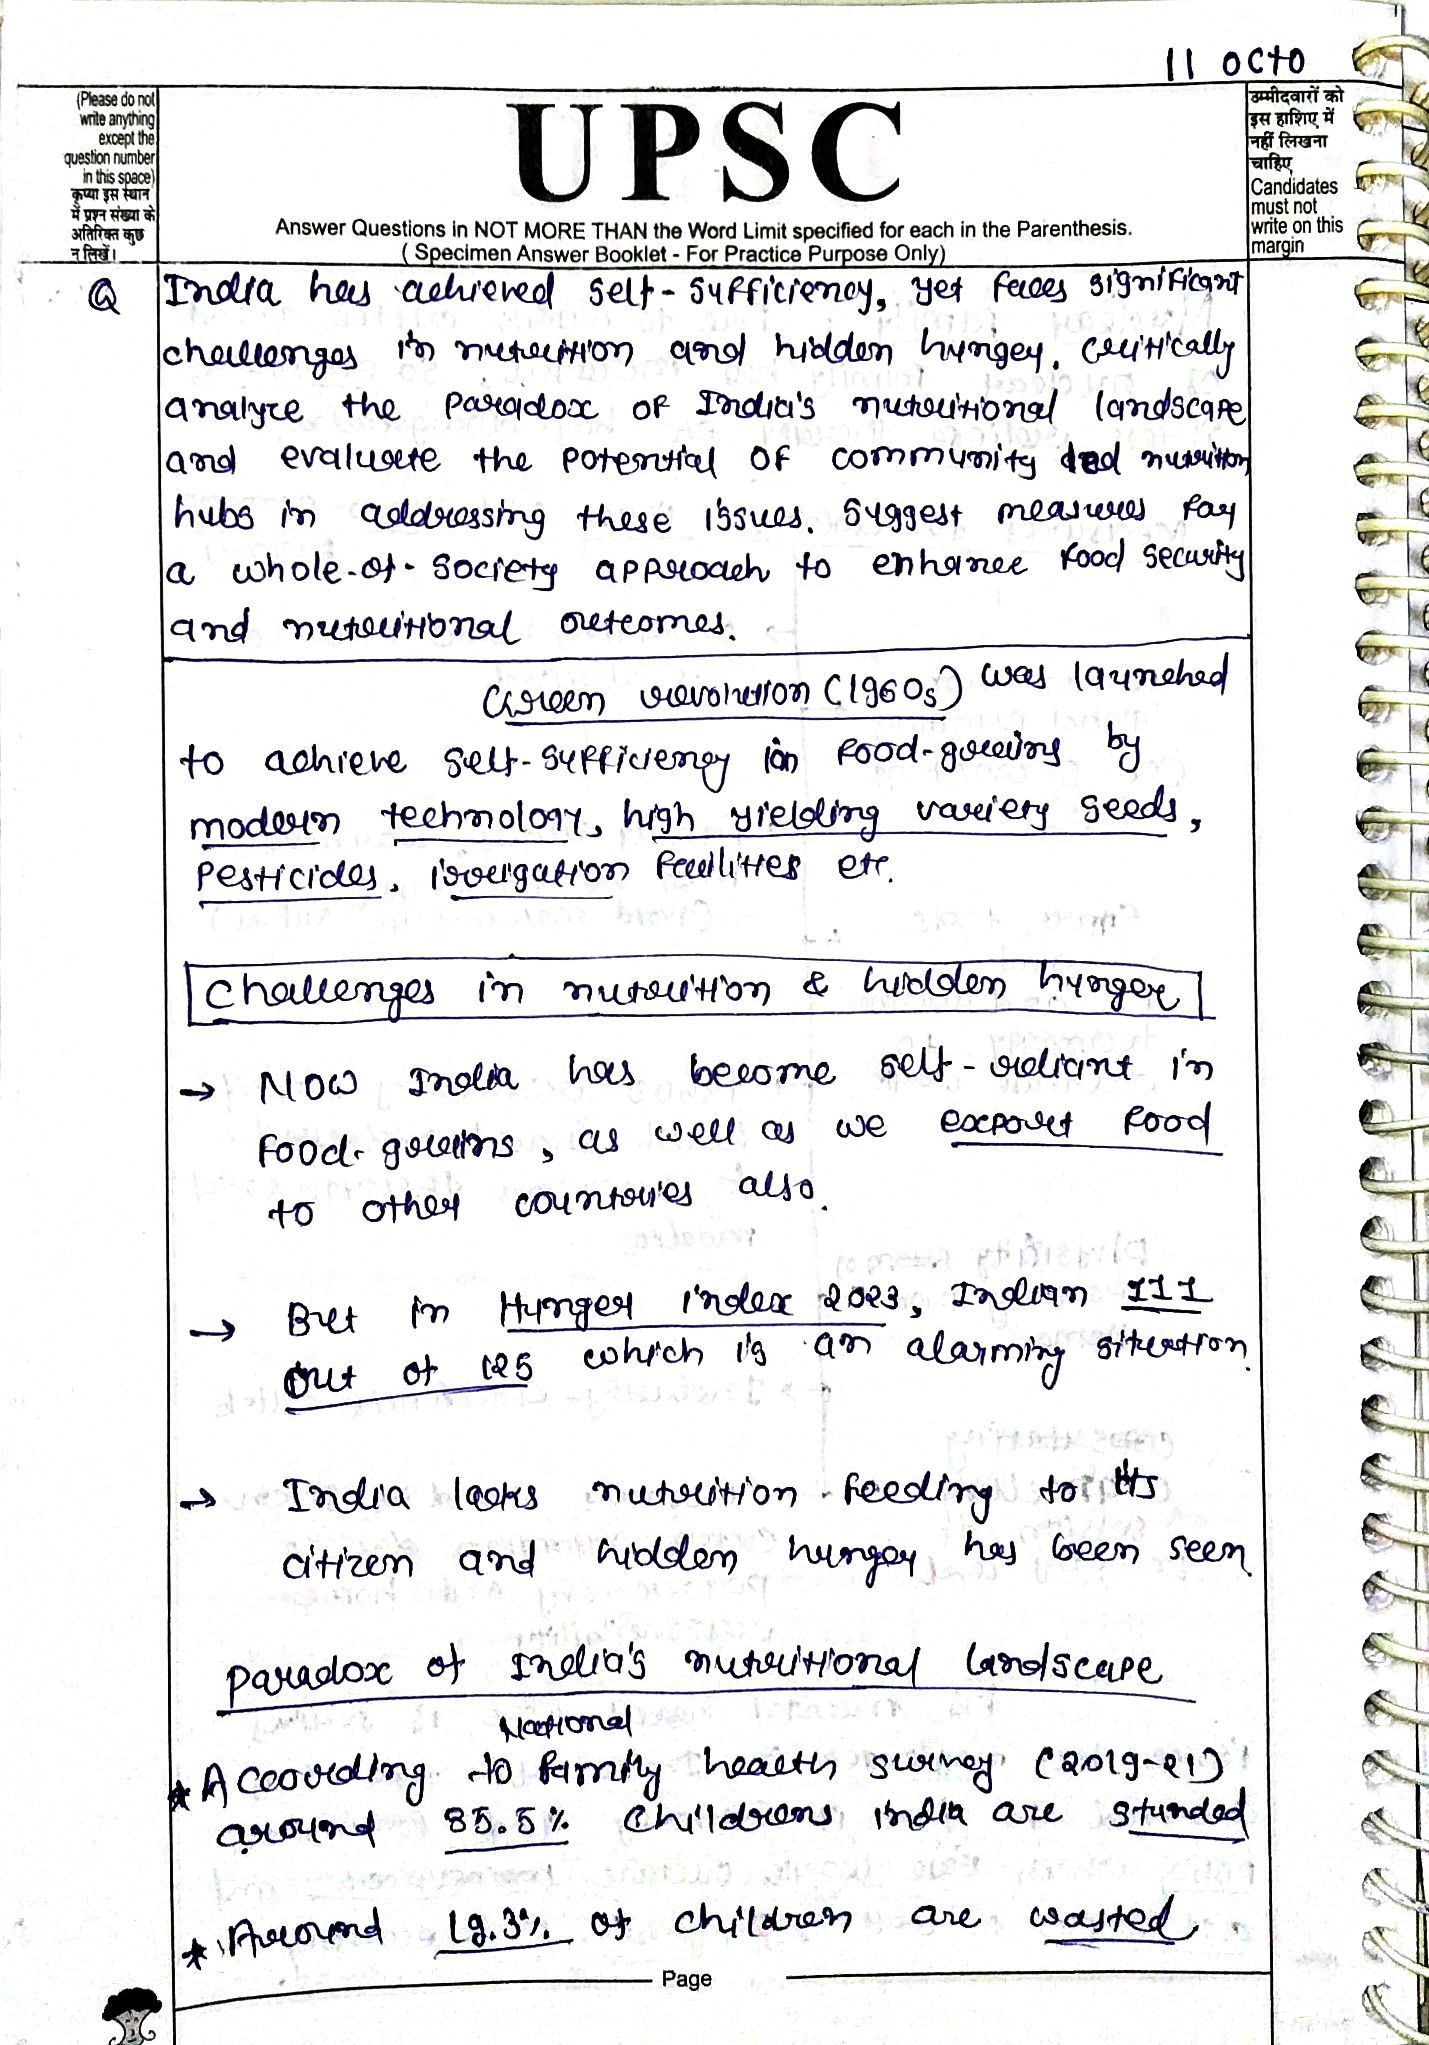 11 Octo
(Please do not
write anything
except the
question number
in this space)
कृप्या इस स्थान
में प्रश्न संख्या के
अतिरिक्त कुछ
न लिखें।
UPSC
Answer Questions in NOT MORE THAN the Word Limit specified for each in the Parenthesis.
( Specimen Answer Booklet - For Practice Purpose Only)
उम्मीदवारों को
इस हाशिए में
नहीं लिखना
चाहिए
Candidates
must not
write on this
margin
Q India has achieved self-sufficiency, yet faces significant
challenges in nutrition and hidden hunger. Critically
analyze the paradox of India's nutritional landscape
and evaluate the potential of community led nutrition
hubs in addressing these issues. Suggest measures for
a whole-of-society approach to enhance food security
and nutritional outcomes.
Green revolution (1960s) was launched
to achieve self-sufficiency in food-grains by
modern technology, high yielding variety seeds,
pesticides, irrigation facilities etc.
Challenges in nutrition & hidden hunger
→ Now India has become self-reliant in
food-grains, as well as we export food
to other countries also.
→ But in Hunger index 2023, Indian 111
out of 125 which is an alarming situation.
→ India lacks nutrition feeding to its
citizen and hidden hunger has been seen
Paradox of India's nutritional landscape
National
* According to family health survey (2019-21)
around 35.5% childrens india are stunded
* Around 19.3% of children are wasted
Page